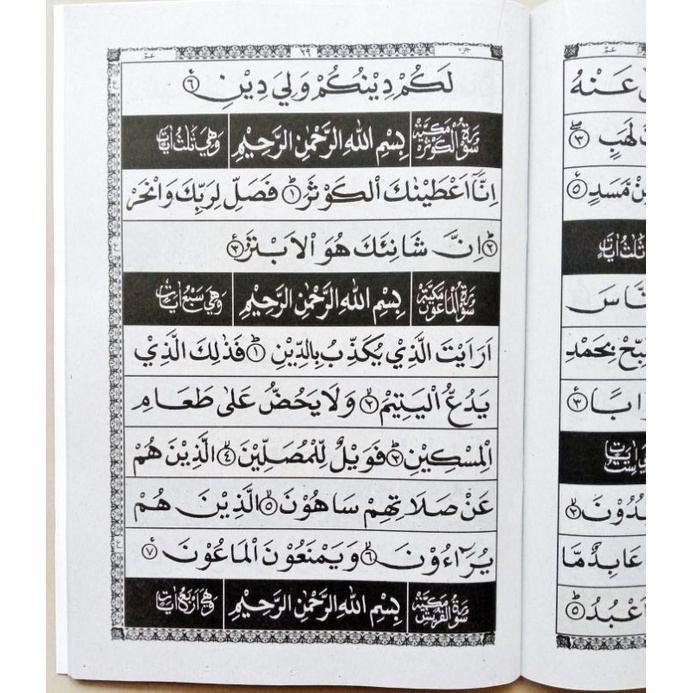 عم
٢٩
جزء
لَكُمْ دِيْنُكُمْ وَلِيَ دِيْنِ ٦
سورة الكوثر مكية بِسْمِ اللّٰهِ الرَّحْمٰنِ الرَّحِيْمِ وهي ثلث ايات
اِنَّا اَعْطَيْنٰكَ الْكَوْثَرَ ١ فَصَلِّ لِرَبِّكَ وَانْحَرْ
٢ اِنَّ شَانِئَكَ هُوَ الْاَبْتَرُ ٣
سورة الماعون مكية بِسْمِ اللّٰهِ الرَّحْمٰنِ الرَّحِيْمِ وهي سبع ايات
اَرَاَيْتَ الَّذِيْ يُكَذِّبُ بِالدِّيْنِ ١ فَذٰلِكَ الَّذِيْ
يَدُعُّ الْيَتِيْمَ ٢ وَلَا يَحُضُّ عَلٰى طَعَامِ
الْمِسْكِيْنِ ٣ فَوَيْلٌ لِّلْمُصَلِّيْنَ ٤ الَّذِيْنَ هُمْ
عَنْ صَلَاتِهِمْ سَاهُوْنَ ٥ الَّذِيْنَ هُمْ
يُرَآءُوْنَ ٦ وَيَمْنَعُوْنَ الْمَاعُوْنَ ٧
سورة القريش مكية بِسْمِ اللّٰهِ الرَّحْمٰنِ الرَّحِيْمِ وهي اربع ايات
عم
عَنْهُ
لَهَبٍ ٣
مَسَدٍ ٥
ثلث ايات
بِحَمْدِ
٣
٢
عَابِدٌ مَّا
اَعْبُدُ ٥